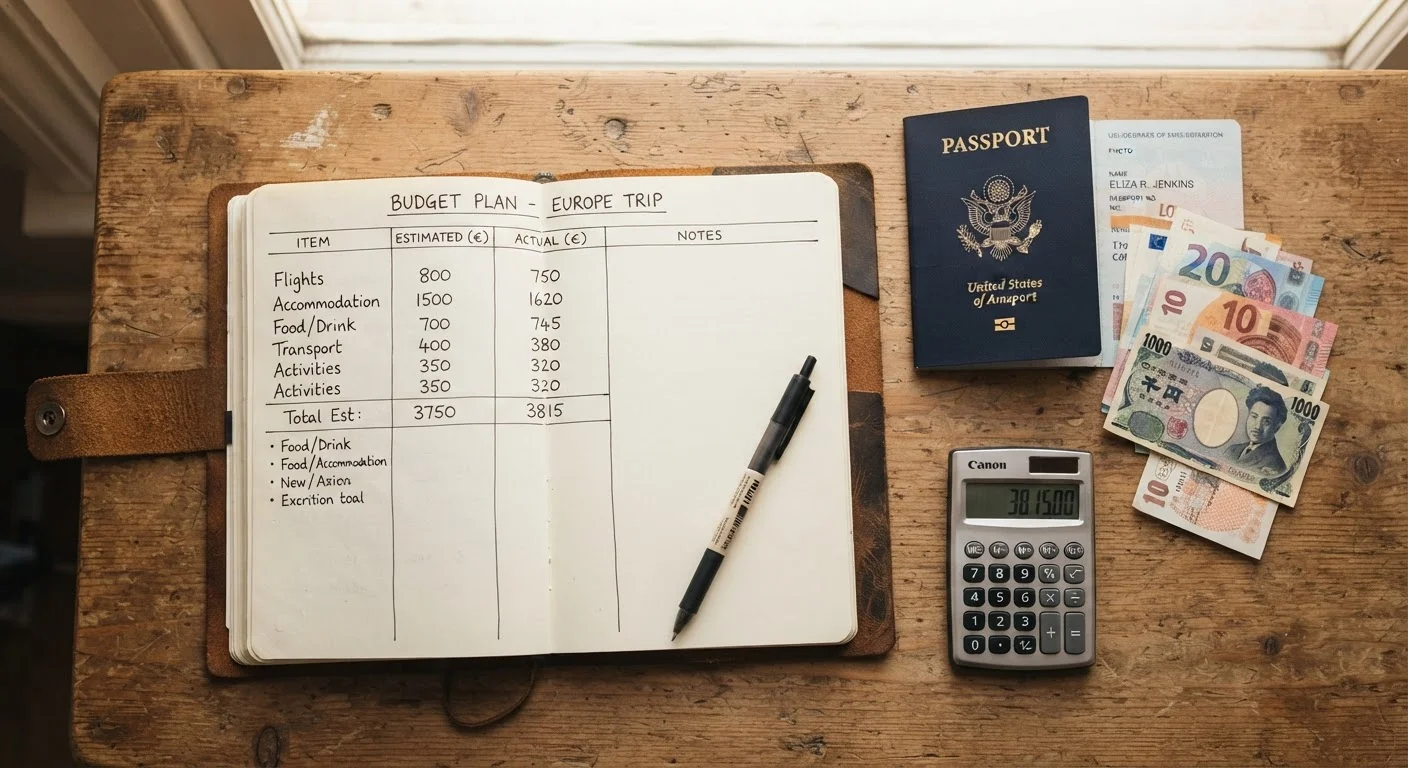 BUDGET PLAN - EUROPE TRIP
ITEM ESTIMATED (€) ACTUAL (€) NOTES
Flights 800 750
Accommodation 1500 1620
Food/Drink 700 745
Transport 400 380
Activities 350 320
Activities 350 320
Total Est: 3750 3815
• Food/Drink
• Food/Accommodation
• New/Asion
• Excrition toal
PASSPORT
United States
of Amaport
NAME
ELIZA R. JENKINS
LO
20
10
10
1000
1000
10
Canon
3815.00
7 8 9
4 5 6 ×
1 2 3 + =
0